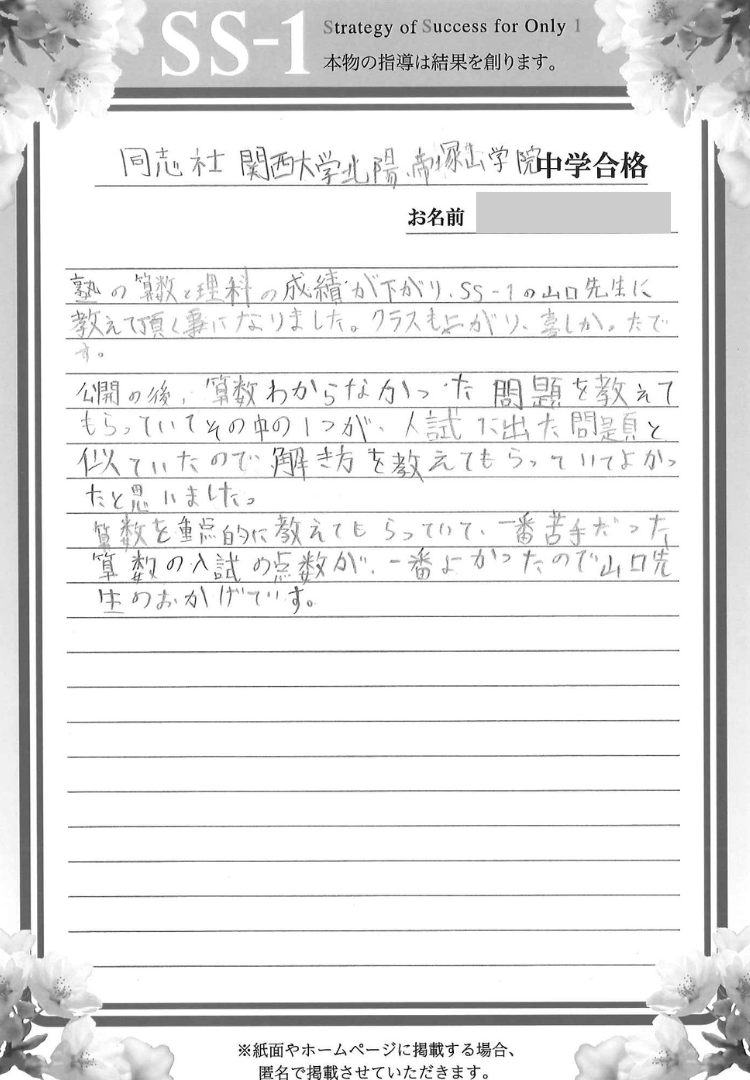 SS-1
Strategy of Success for Only 1
本物の指導は結果を創ります。
同志社 関西大学北陽、帝塚山学院中学合格
お名前
塾の算数と理科の成績が下がり、SS-1の山口先生に
教えて頂く事になりました。クラスも上がり、楽しかったで
す。
公開の後、算数わからなかった問題を教えて
もらっていてその中の1つが、入試に出た問題と
似ていたので解き方を教えてもらっていてよかっ
たと思いました。
算数を重点的に教えてもらっていて、一番苦手だった
算数の入試の点数が、一番よかったので山口先
生のおかげでいす。
※紙面やホームページに掲載する場合、
匿名で掲載させていただきます。